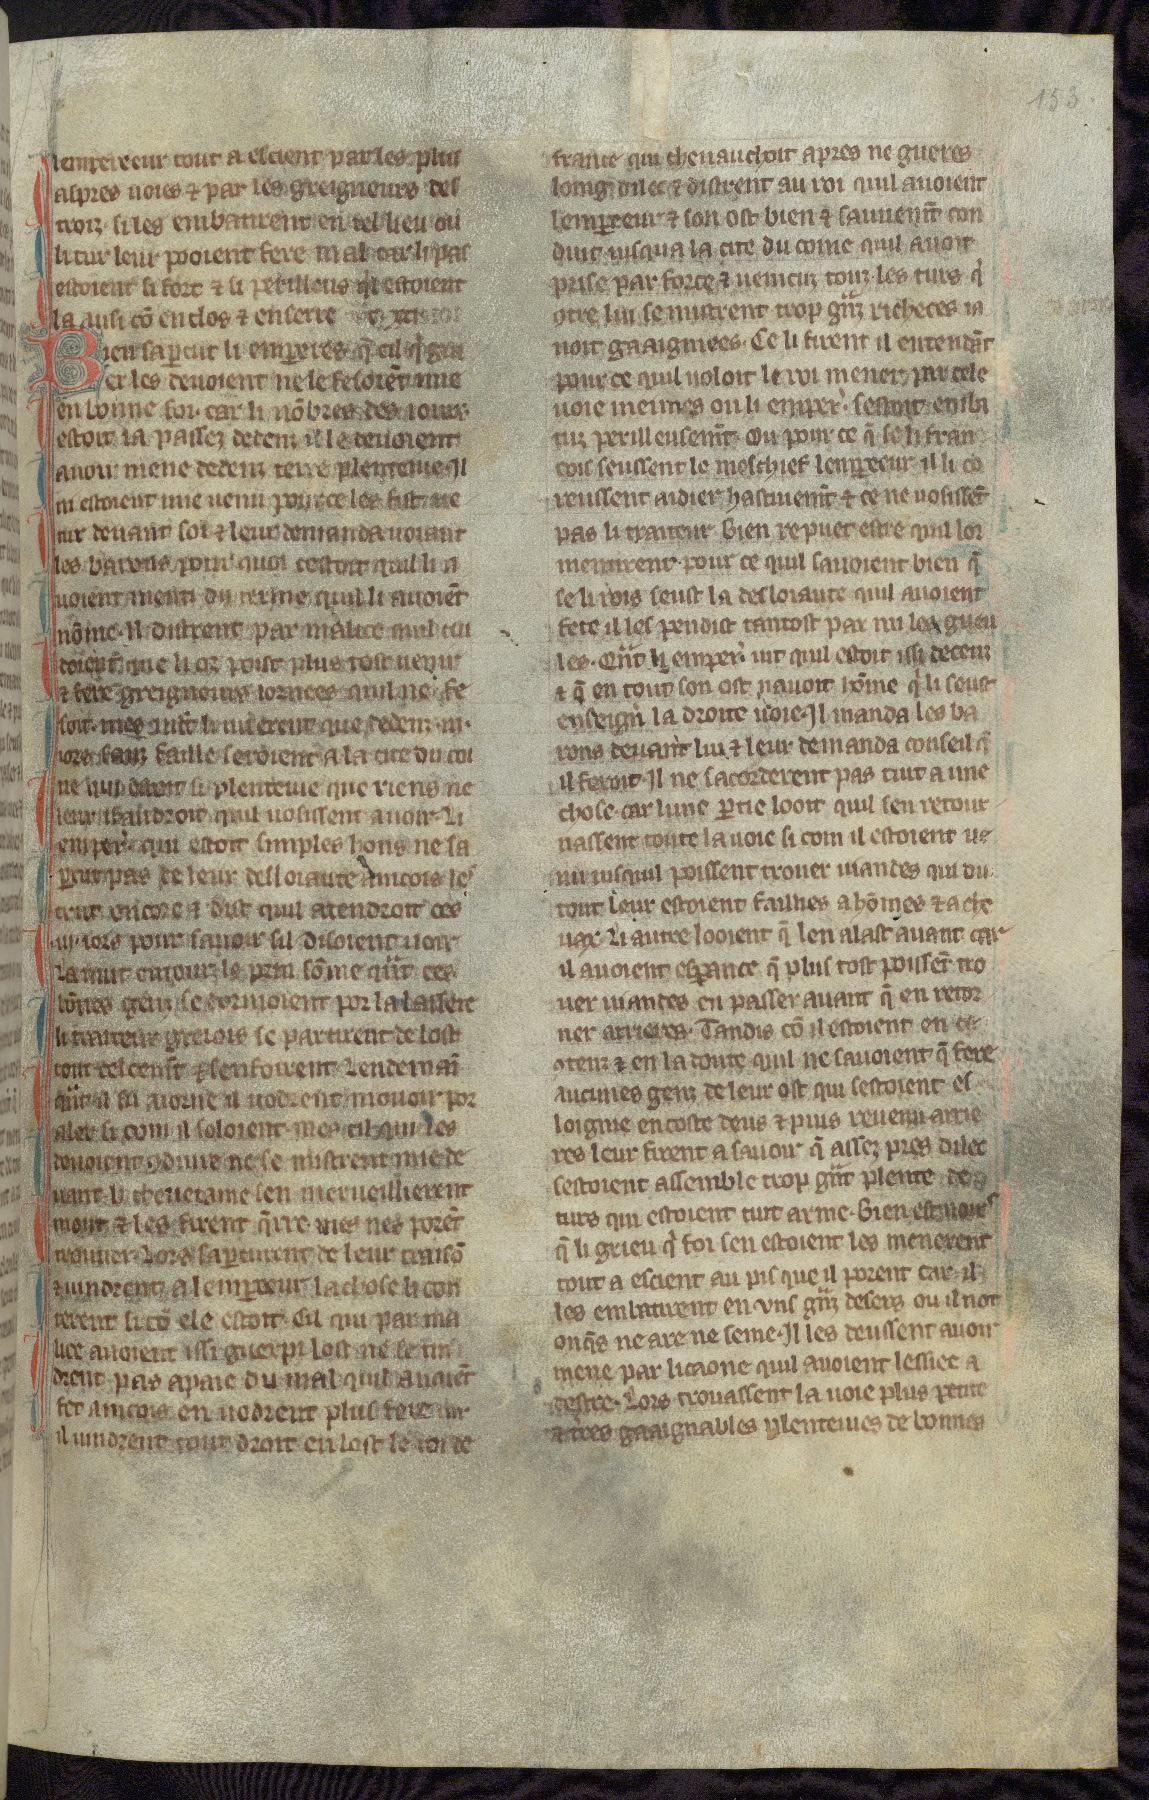 153.
lempereeur tout a escient par les plus
aspres uoies & par les greigneurs des
troiz. si les embatirent en tel lieu ou
li tur leur pooient fere mal car li pas
estoient si fort & si perilleus qͥl estoient
la ausi cō en clos & en serre
Bien sap̄cut li emp̄eres. q̄ cil q̄ gui
er les deuoient ne le fesoiēt mie
en bonne foi. car li nōbres des iours
estoit ia passez dedenz il le deuoient
auoir mene dedenz terre plenteiue. Il
ni estoient mie uenu pour ce les fist ue
nir deuant soi & leur demanda uoiant
les barons pour quoi cestoit quil li a
uoient menti du terme quil li auoiēt
nōme. Il distrent par malice quil cui
doient que li oz poist plus tost uenir
& fere greigneurs iornees quil ne fe
soit. mes iurerent que dedenz .iii.
iors sanz faille seroient a la cite du coi
ne qui estoit si plenteiue que riens ne
leur i faudroit quil uosissent auoir. Li
emper̄. qui estoit simples hons ne sa
p̄cut pas de leur desloiaute aincois les
crut encore & dist quil atendroit ces
.iii. iors pour sauoir sil disoient uoir
La nuit entour le prin sōme qn̄t ces
bōnes genz se dormoient por la lassete
li traiteur grezois se partirent de lost
tout celeemēt & senfoirent. Lendemaī
qn̄t il fu aiorne il uodrent mouoir por
aler si com il soloient. mes cil qui les
deuoient 9duire ne se mistrent mie de
uant. li cheuetaine sen merueillierent
mout & les firent q̄rre. mes nes porēt
trouuer. Lors sap̄curent de leur traisō
& uindrent a lemp̄eeur la chose li con
terent si cō ele estoit. Cil qui par ma
lice auoient issi guerpi lost ne se tin
drent pas a paie du mal quil auoiēt
fet aincois en uodrent plus fere car
il uindrent tout droit en lost le roi de
france qui cheuauchoit apres ne gueres
loing dilec & distrent au roi quil auoient
lemp̄eeur & son ost bien & sauuemn̄t con
duit iusqua la cite du coine quil auoit
prise par force & uencuz touz les turs qͥ
9tre lui se mistrent trop gn̄z richeces ia
uoit gaaignees. Ce li firent il entendāt
pour ce quil uoloit le roi mener par cele
uoie meimes ou li emper̄. sestoit enba
tuz perilleusemn̄t. Ou pour ce q̄ se li fran
cois seussent le meschief lemp̄eeur il li co
reussent aidier hastiuemn̄t & ce ne uosissēt
pas li traiteur. Bien re puet estre quil lor
mentirent. pour ce quil sauoient bien q̄
se li rois seust la desloiaute quil auoient
fete il les pendist tantost par mi les gueu
les. Qn̄t li emper̄. uit quil estoit issi deceuz
& q̄ en tout son ost nauoit hōme qͥ li seust
enseignͥ la droite uoie. Il manda les ba
rons deuant lui & leur demanda conseil q̄
il feroit. Il ne sacorderent pas tuit a une
chose. car lune p̄tie looit quil sen retour
nassent toute la uoie si com il estoient ue
nu iusquil poissent trouer uiandes qui du
tout leur estoient faillies a hōmes & a che
uax. Li autre looient q̄ len alast auant car
il auoient esp̄ance q̄ plus tost poissēt tro
uer uiandes en passer auant q̄ en retor
ner arrieres. Tandis cō il estoient en ce
9tenz & en la doute quil ne sauoient q̄ fere
aucunes genz de leur ost qui sestoient es
loignie encoste deus & puis reuenu arrie
res leur firent a sauoir q̄ assez pres dilec
sestoient assemble trop gn̄t plente de
turs qui estoient tuit arme. Bien est uoirs
q̄ li grieu qͥ foi sen estoient les menerent
tout a escient au pis que il porent car il
les enbatirent en uns gn̄z desers ou il not
onq̄s ne are ne seme. Il les deussent auoir
mene par licaone quil auoient lessiee a
destre. Lors trouassent la uoie plus petite
& t̄res gaaignables plenteiues de bonnes